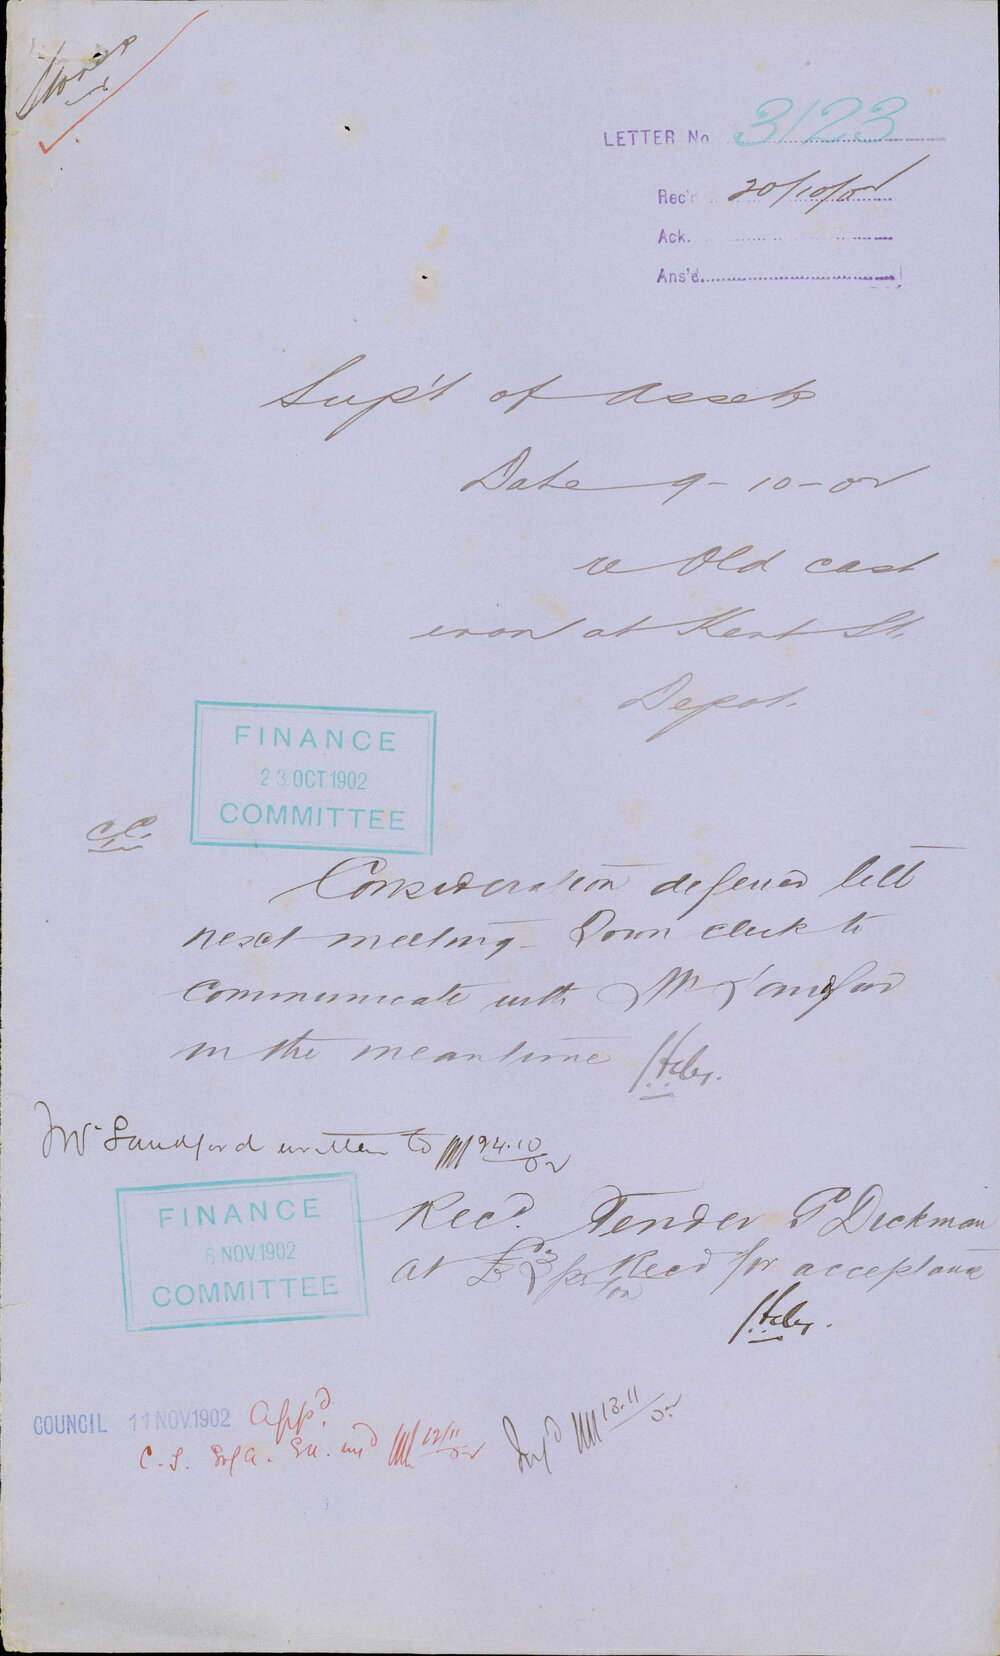 Stores
LETTER No 3123
Rec'd 20/10/02
Ack.
Ans'd
Sup't of Assets
Date 9-10-02
re Old cast
iron at Kent St.
Depot.
FINANCE
23 OCT. 1902
COMMITTEE
Consideration deferred till
next meeting - Town clerk to
communicate with Mr Sandford
in the meantime
Mr Sandford written to 24.10/02
FINANCE
6 NOV. 1902
COMMITTEE
Recd. Tender P Dickman
at £3 per ton Recd for acceptance
COUNCIL 11 NOV. 1902 Appd.
C.S. Sof A. 12/11/02
13.11/02